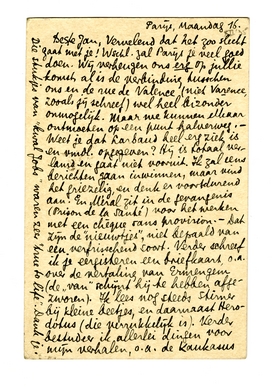 Parijs, Maandag 16.
Beste Jan, Vervelend dat het zoo slecht
gaat met je! Wschl. zal Parijs je veel goed
doen. Wij verheugen ons erg op jullie
komst, al is de verbinding tusschen
ons en de rue de Valence (niet Varence,
zooals jij schreef) wel heel bizonder
onmogelijk. Maar we kunnen elkaar
ontmoeten op een punt halverweg. —
Weet je dat Barbaud heel erg ziek is
en moet opgegeven? Hij is totaal ver-
en gaat niet vooruit. Ik zal eens
berichten gaan inwinnen, maar vind
het griezelig, en denk er voortdurend
aan. En Miral zit in de gevangenis
(Prison de la Santé) voor het werken
met een chèque sans provision. — Dat
zijn de nieuwtjes, niet bepaald van
een verfrisschend soort. Verder schreef
ik je eergisteren een briefkaart, o.a.
over de vertaling van Ermingen
(de „van” schijnt hij te hebben afge-
zworen). Ik lees nog steeds Stirner
bij kleine beetjes, en daarnaast Hero-
dotus (die verrukkelijk is). Verder
bestudeer ik allerlei dingen voor
mijn verhalen, o.a. de Kaukasus
Die stukjes van "Kwal Jobs" waren zeer 'true to life'. Dank je.